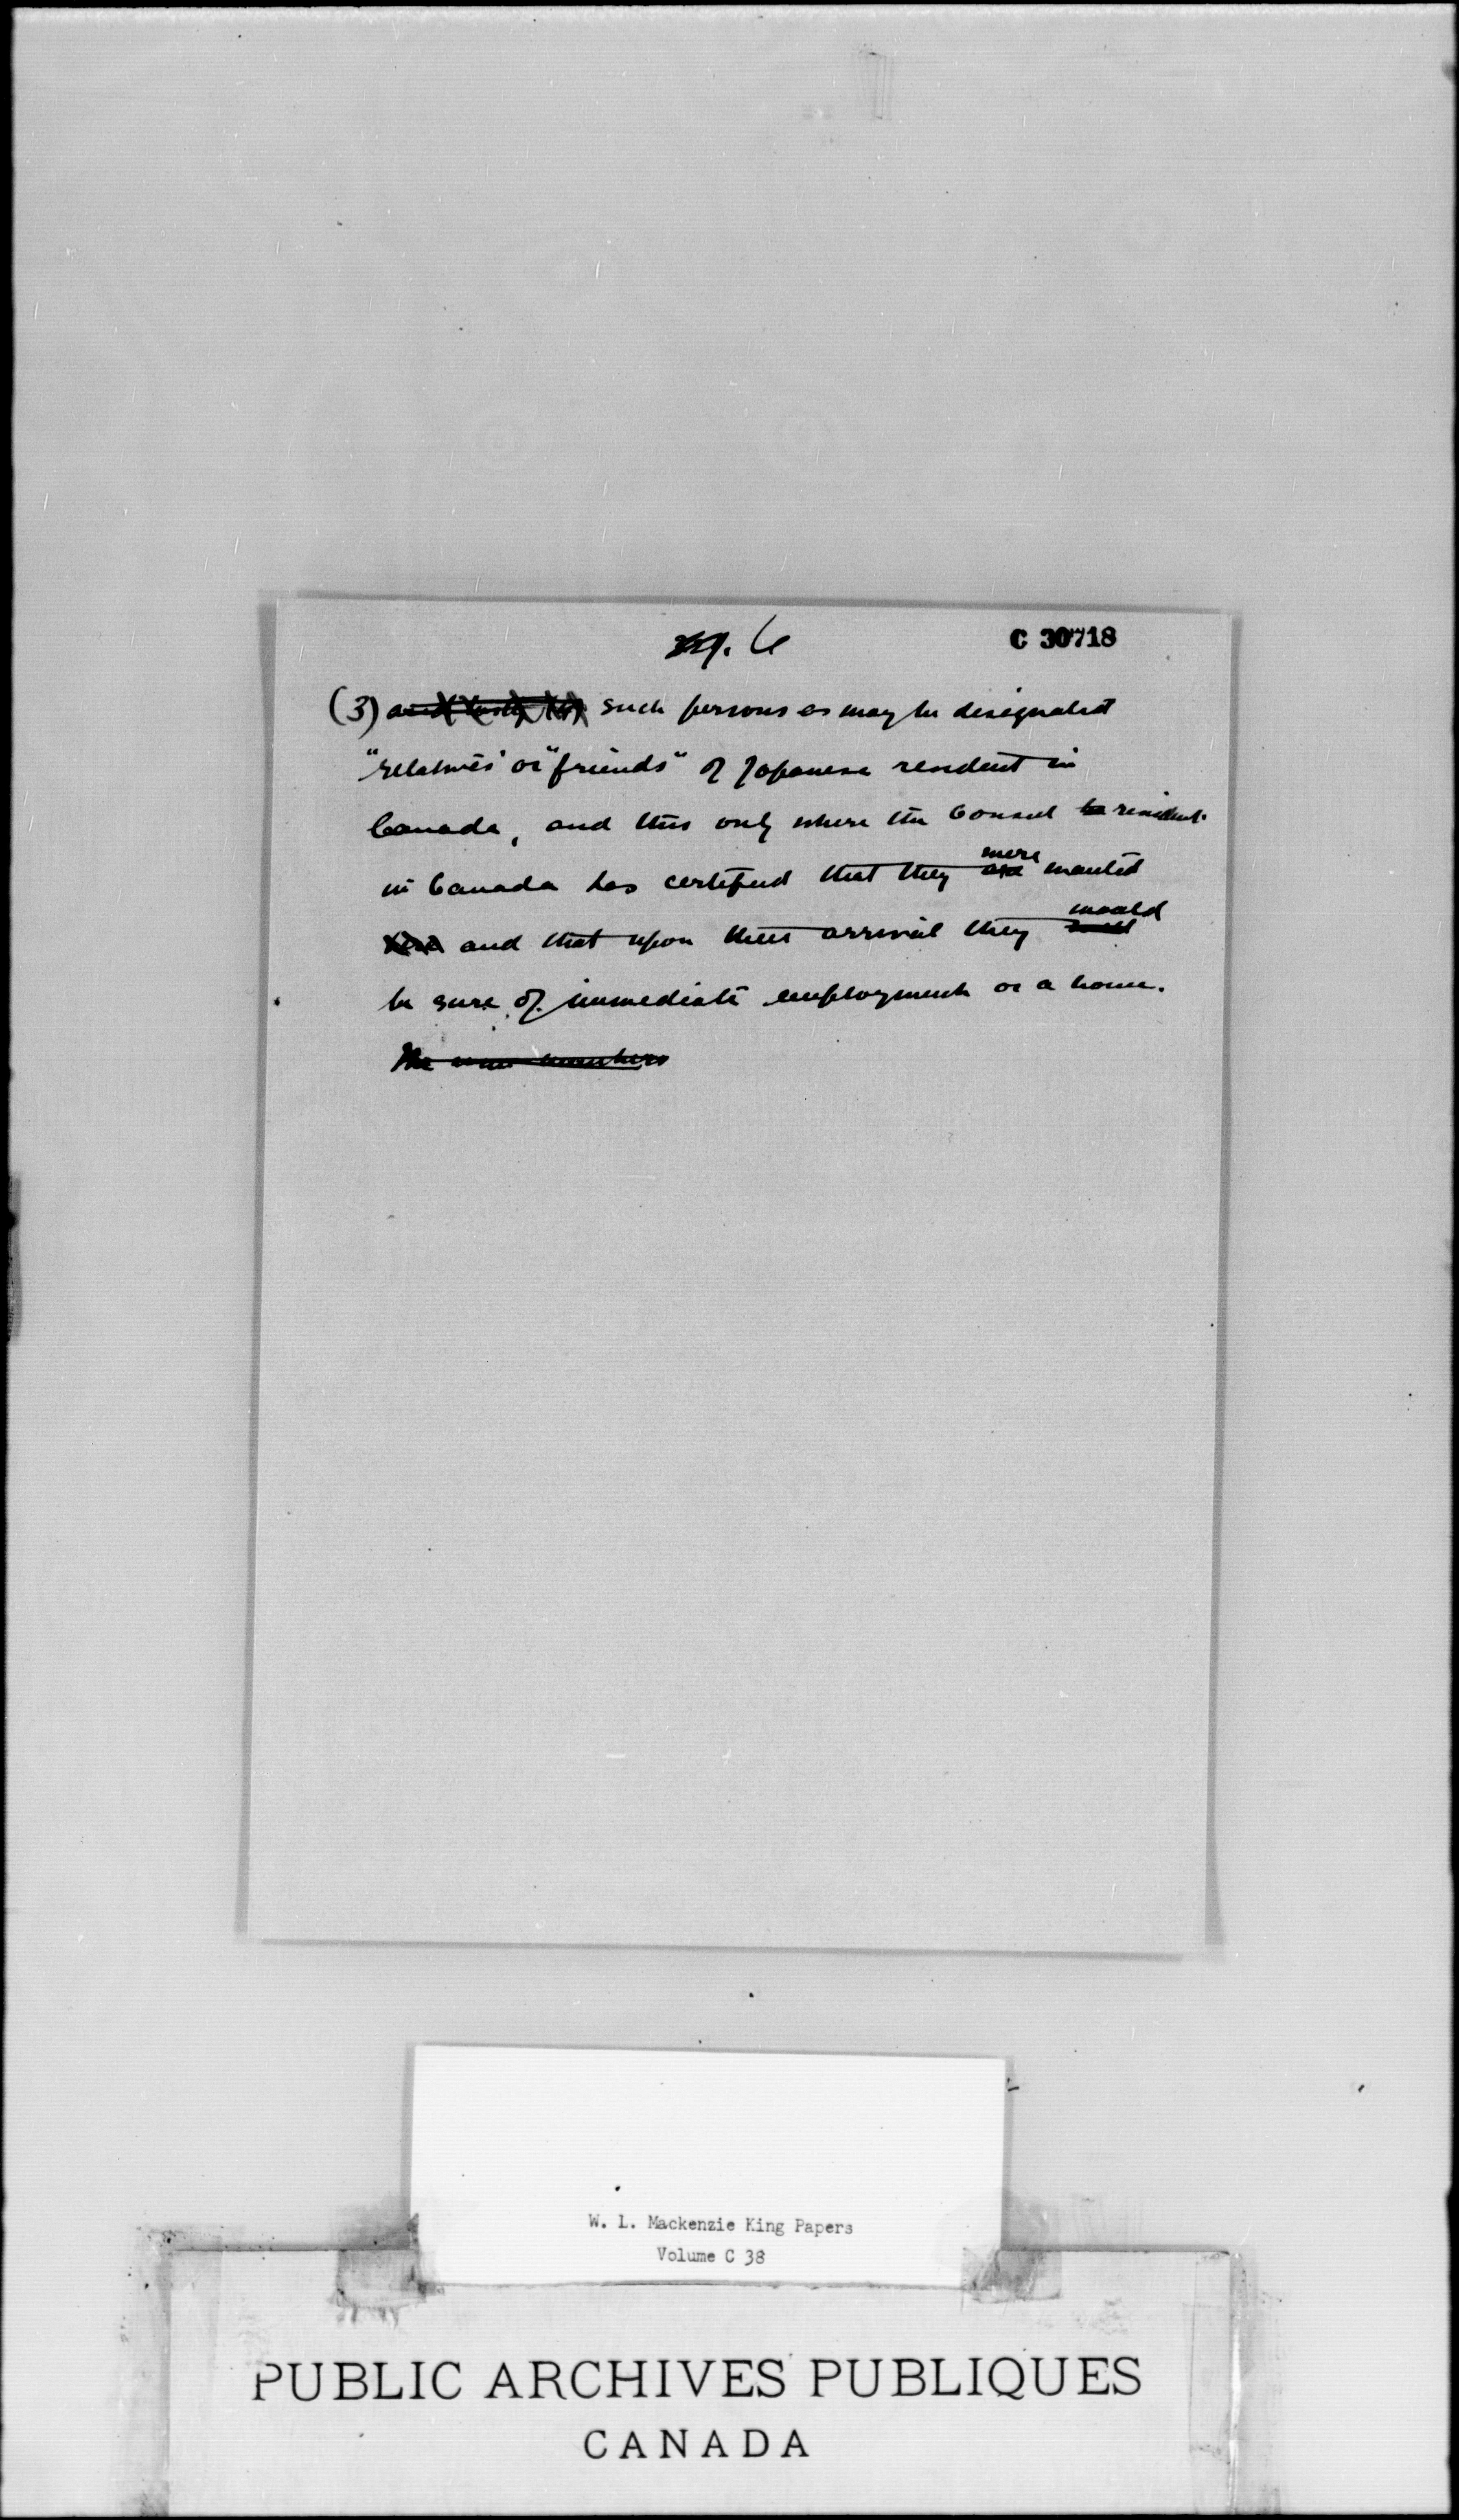 6
C 30718
(3) such persons as may be designated
"relatives" or "friends" of Japanese resident in
Canada, and this only where the Consul resident
were
in Canada has certified that they are wanted
would
and that upon their arrival they could
be sure of immediate employment or a home.
The
W. L. Mackenzie King Papers
Volume C 38
PUBLIC ARCHIVES PUBLIQUES
CANADA